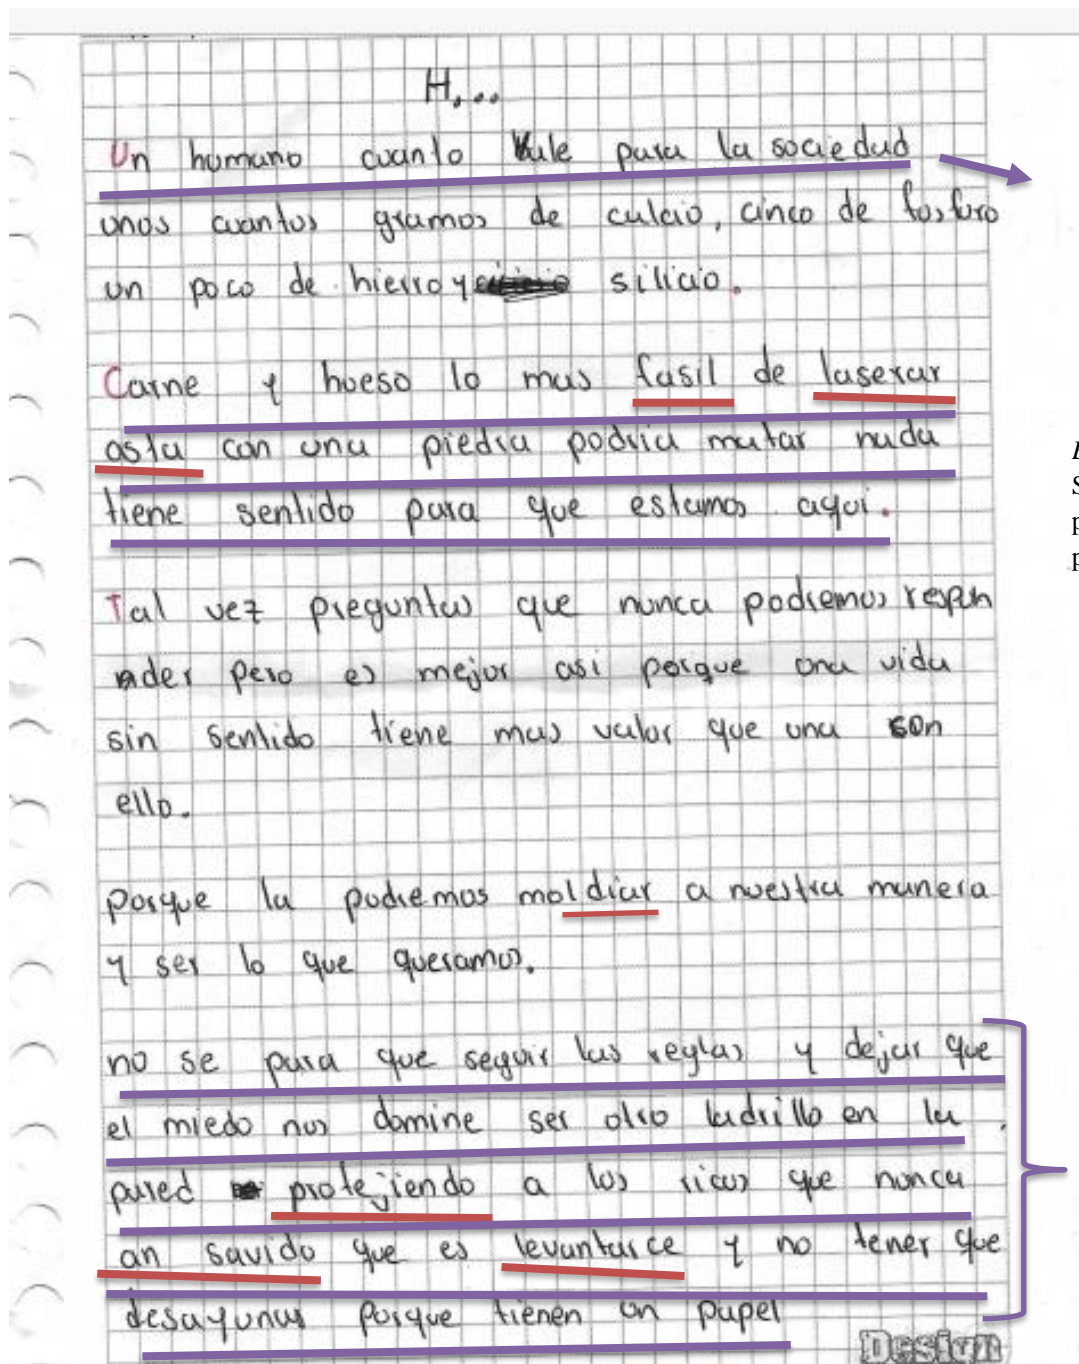 H...
Un humano cuanto vale para la sociedad
unos cuantos gramos de calcio, cinco de fosforo
un poco de hierro y silicio.
Carne y hueso lo mas fasil de laserar
asta con una piedra podria matar nada
tiene sentido para que estamos aqui.
Tal vez preguntas que nunca podremos respon
nder pero es mejor asi porque una vida
sin sentido tiene mas valor que una con
ello.
porque la podremos moldiar a nuestra manera
y ser lo que queramos.
no se para que seguir las reglas y dejar que
el miedo nos domine ser otro ladrillo en la
pared protejiendo a los ricos que nunca
an savido que es levantarce y no tener que
desayunar porque tienen un papel
Design